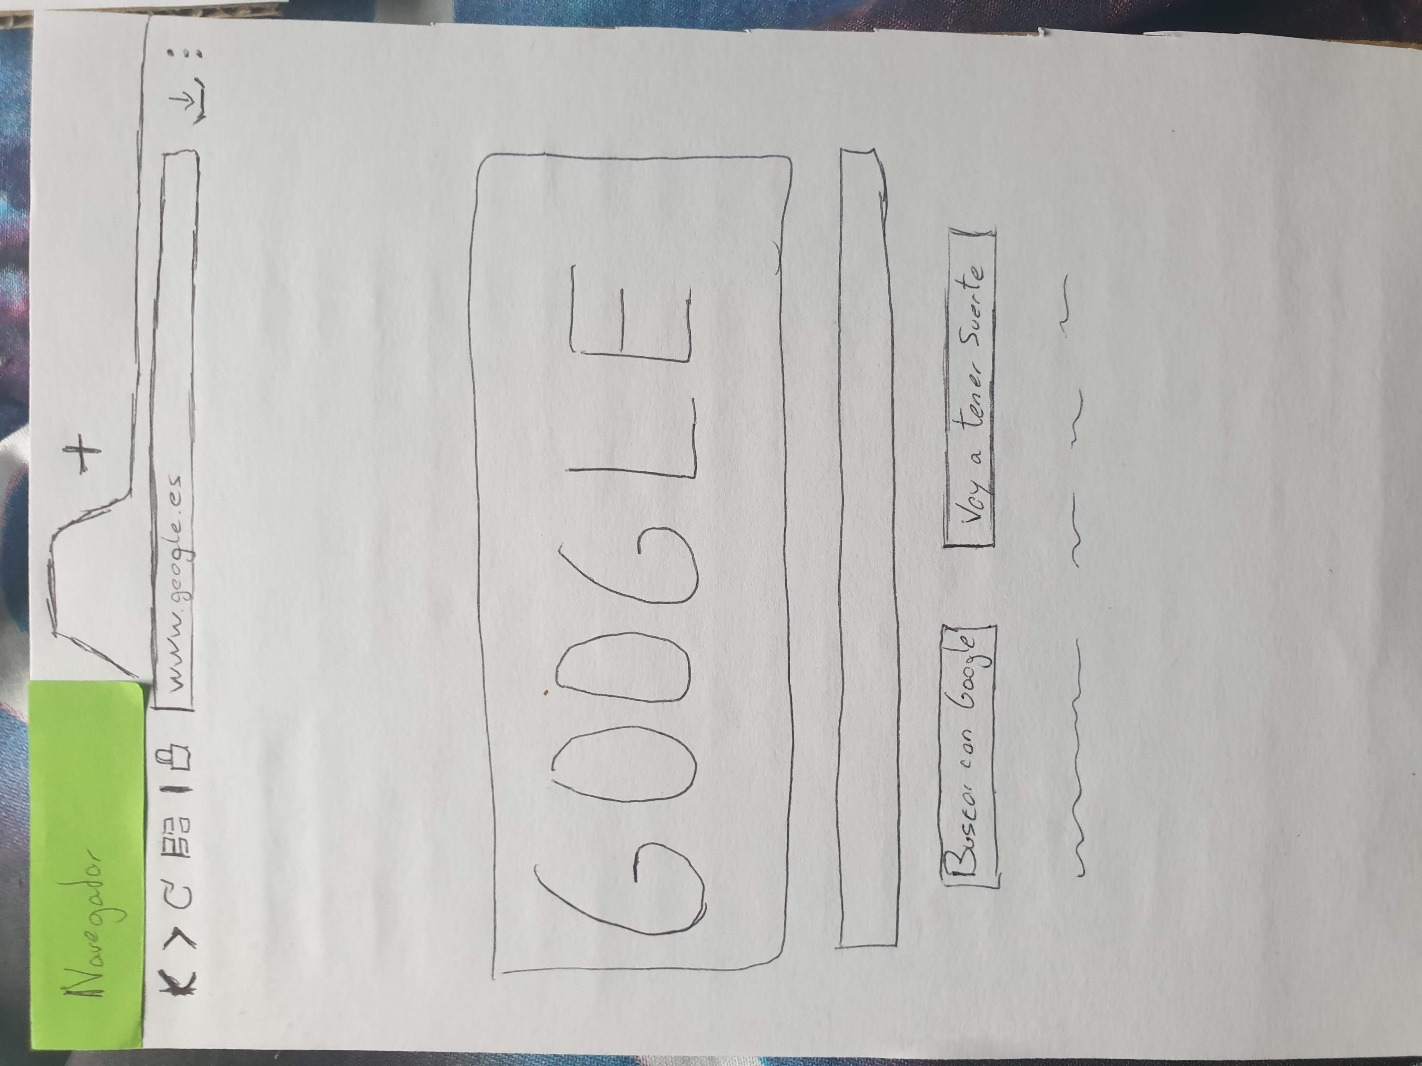 Navegador
+
www.google.es
GOOGLE
Buscar con Google
Voy a tener suerte